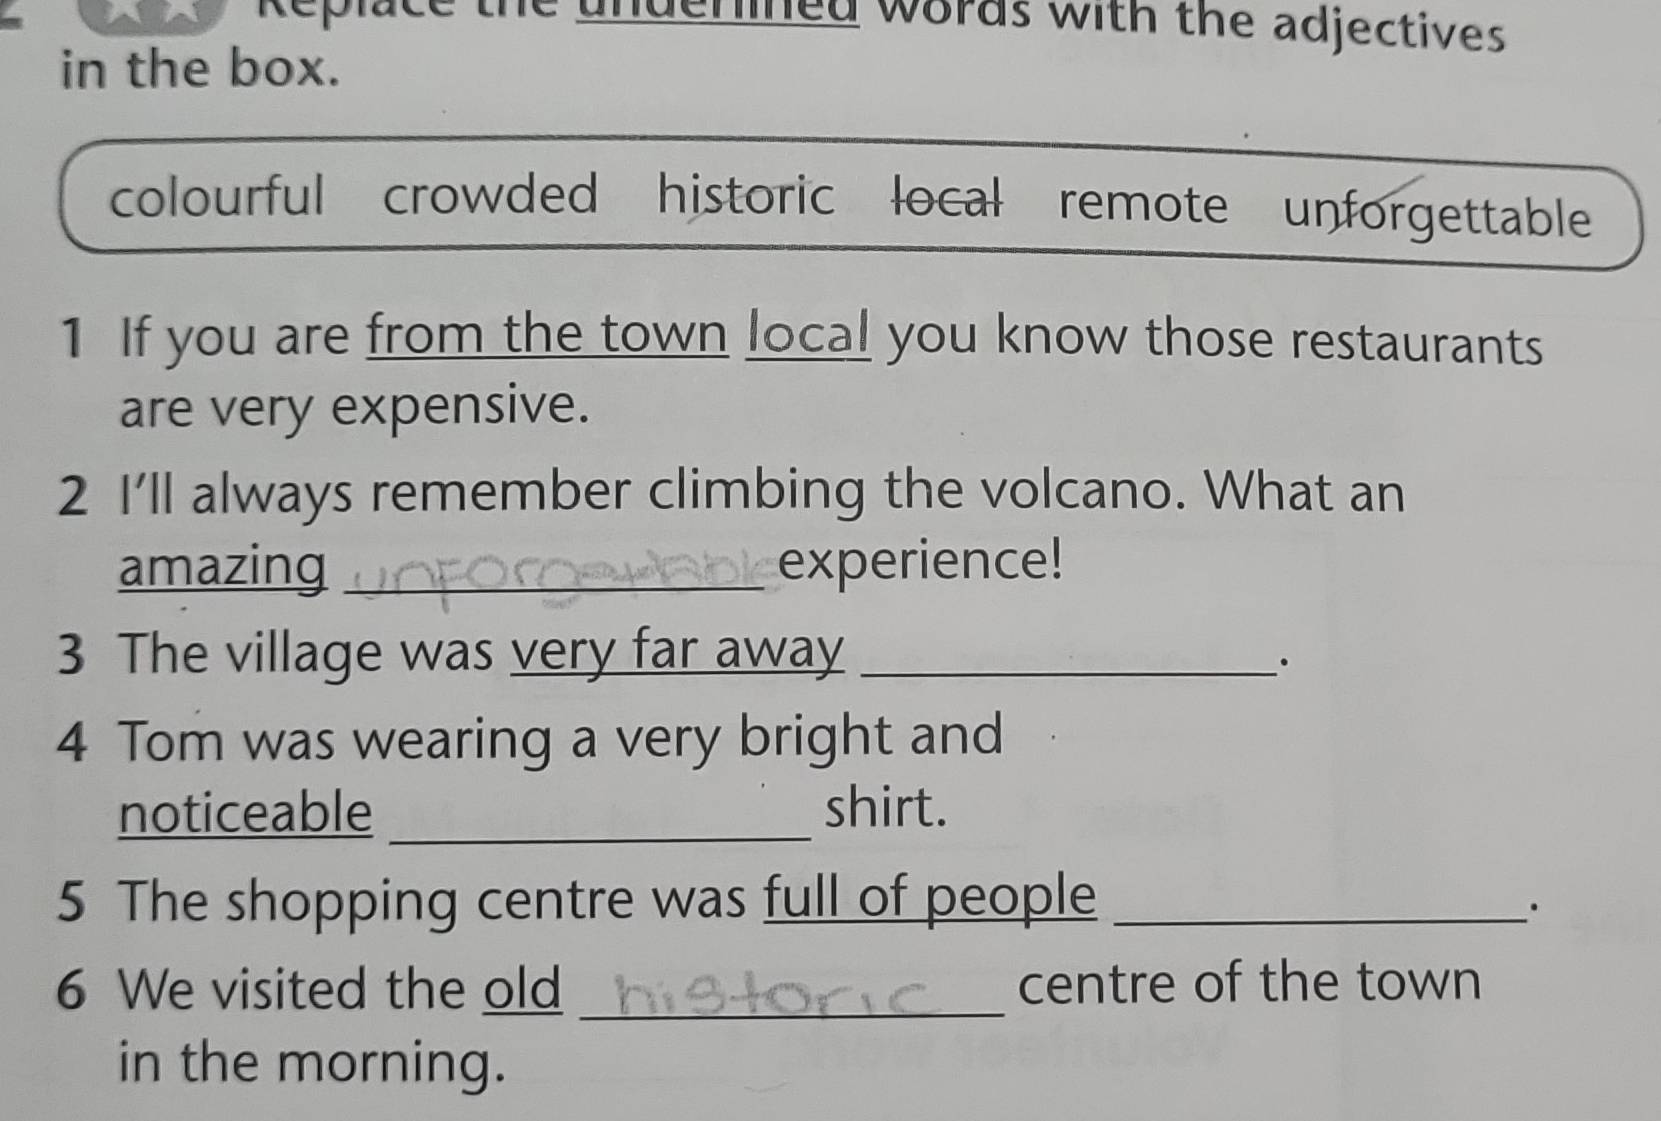 Replace the underlined words with the adjectives
in the box.
colourful crowded historic local remote unforgettable
1 If you are from the town local you know those restaurants
are very expensive.
2 I'll always remember climbing the volcano. What an
amazing unforgettable experience!
3 The village was very far away ________.
4 Tom was wearing a very bright and
noticeable ________ shirt.
5 The shopping centre was full of people ________.
6 We visited the old historic centre of the town
in the morning.